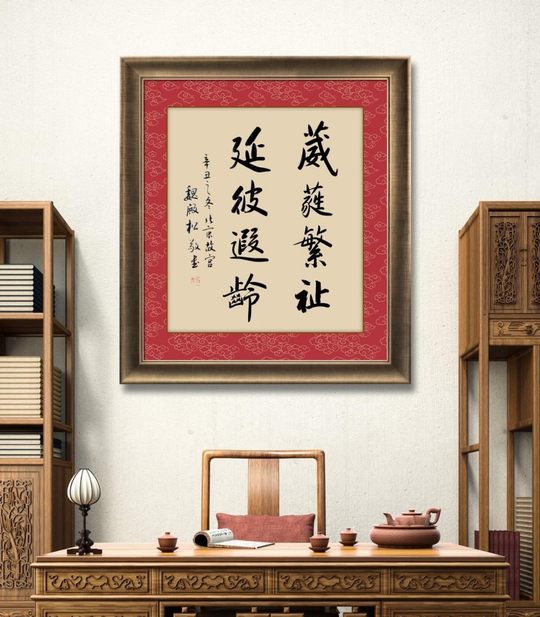 葳蕤繁祉
延彼遐龄
辛丑之冬北京故宫
魏殿松敬书